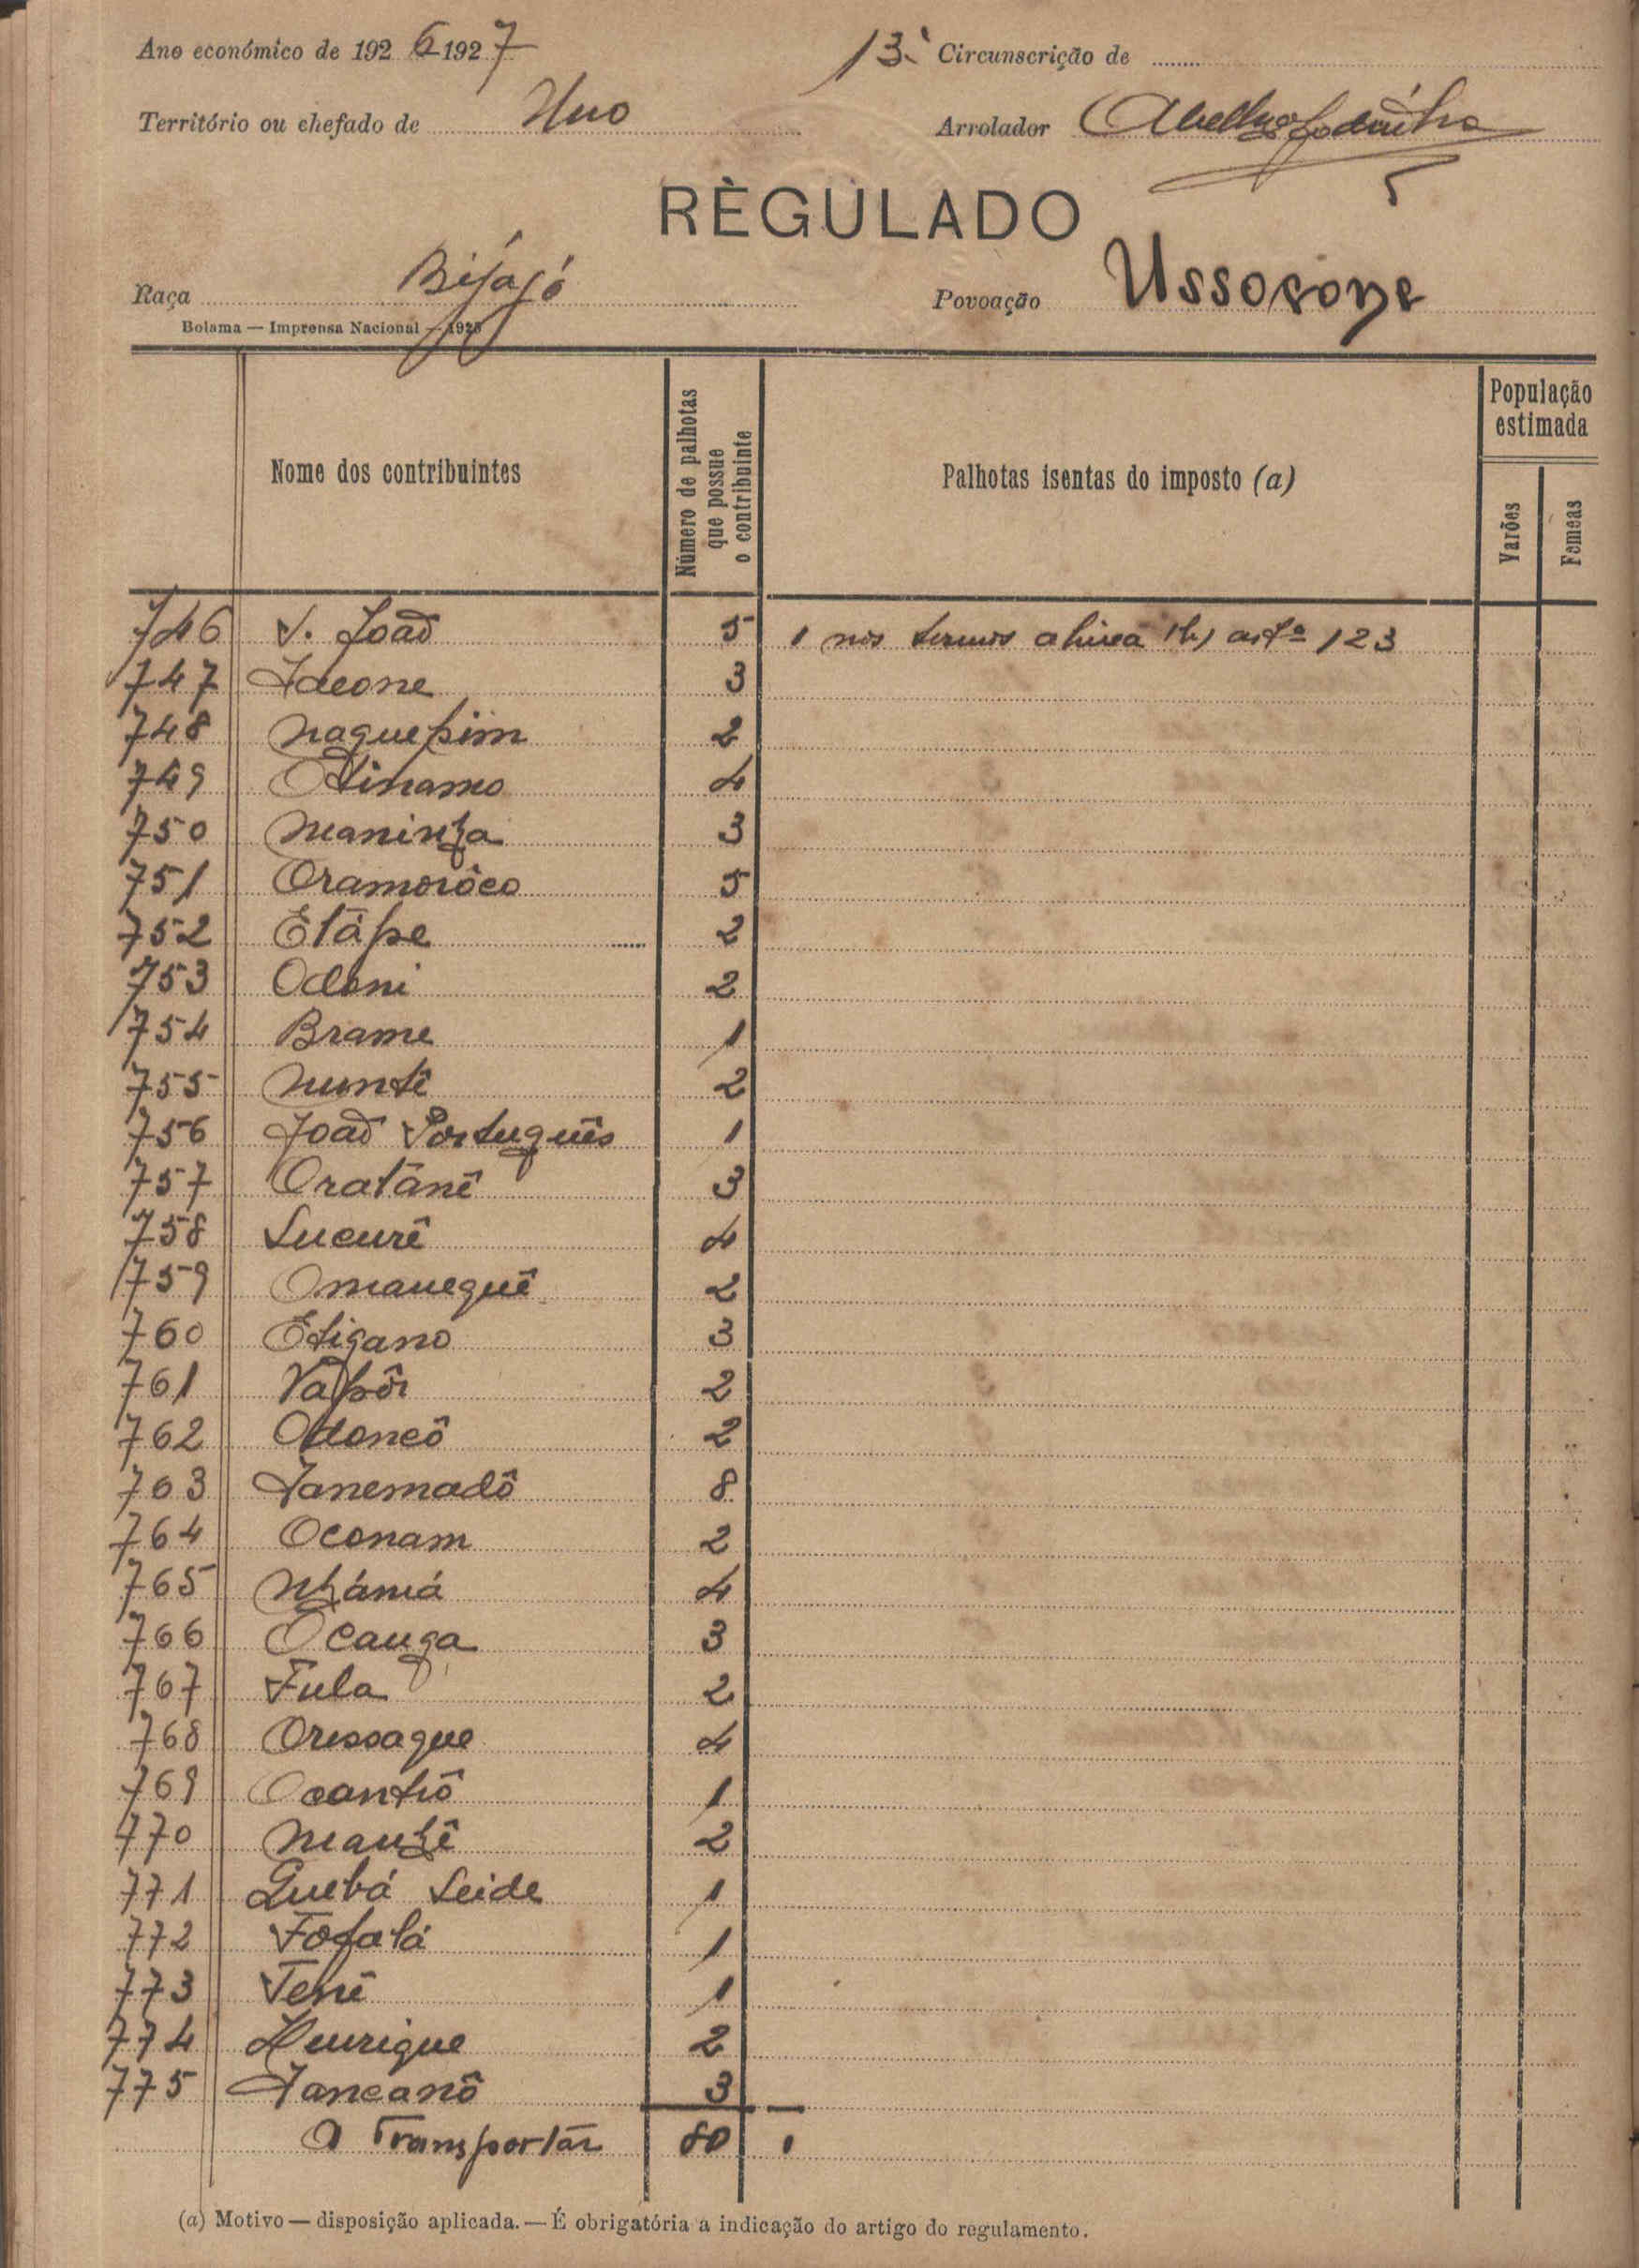 Ano económico de 1926 1927 13.ª Circunscrição de
Território ou chefado de Uno Arrolador
RÈGULADO
Raça Bijagó Povoação
Bolama — Imprensa Nacional — 1925
Nome dos contribuintes
Número de palhotas que possue o contribuinte
Palhotas isentas do imposto (a)
População estimada
Varões
Femeas
746 S. João 5 1 nos termos alinea (b) artº 123
747 3
748 Naquepim 2
749 4
750 Maninha 3
751 Oramorôco 5
752 Etápe 2
753 Odoni 2
754 Brame 1
755 Nuntê 2
756 João Português 1
757 Oratánê 3
758 Sucurê 4
759 Omanequê 2
760 Etigano 3
761 Vapôr 2
762 2
763 Janemadô 8
764 Oconam 2
765 Nhámá 4
766 Ocanga 3
767 Fula 2
768 Oressaque 4
769 1
770 Manhê 2
771 Quebá Seide 1
772 Fofalá 1
773 Tenê 1
774 Henrique 2
775 Jancanô 3
A Transportár 80 1
(a) Motivo — disposição aplicada. — É obrigatória a indicação do artigo do regulamento.